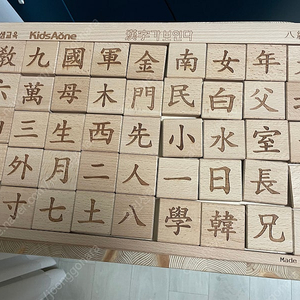 생교육 KidsAone 漢字가 보인다 八
敎九國軍金南女年
六萬母木門民白父
三生西先小水室
外月二人一日長
寸七土八學韓兄
Made